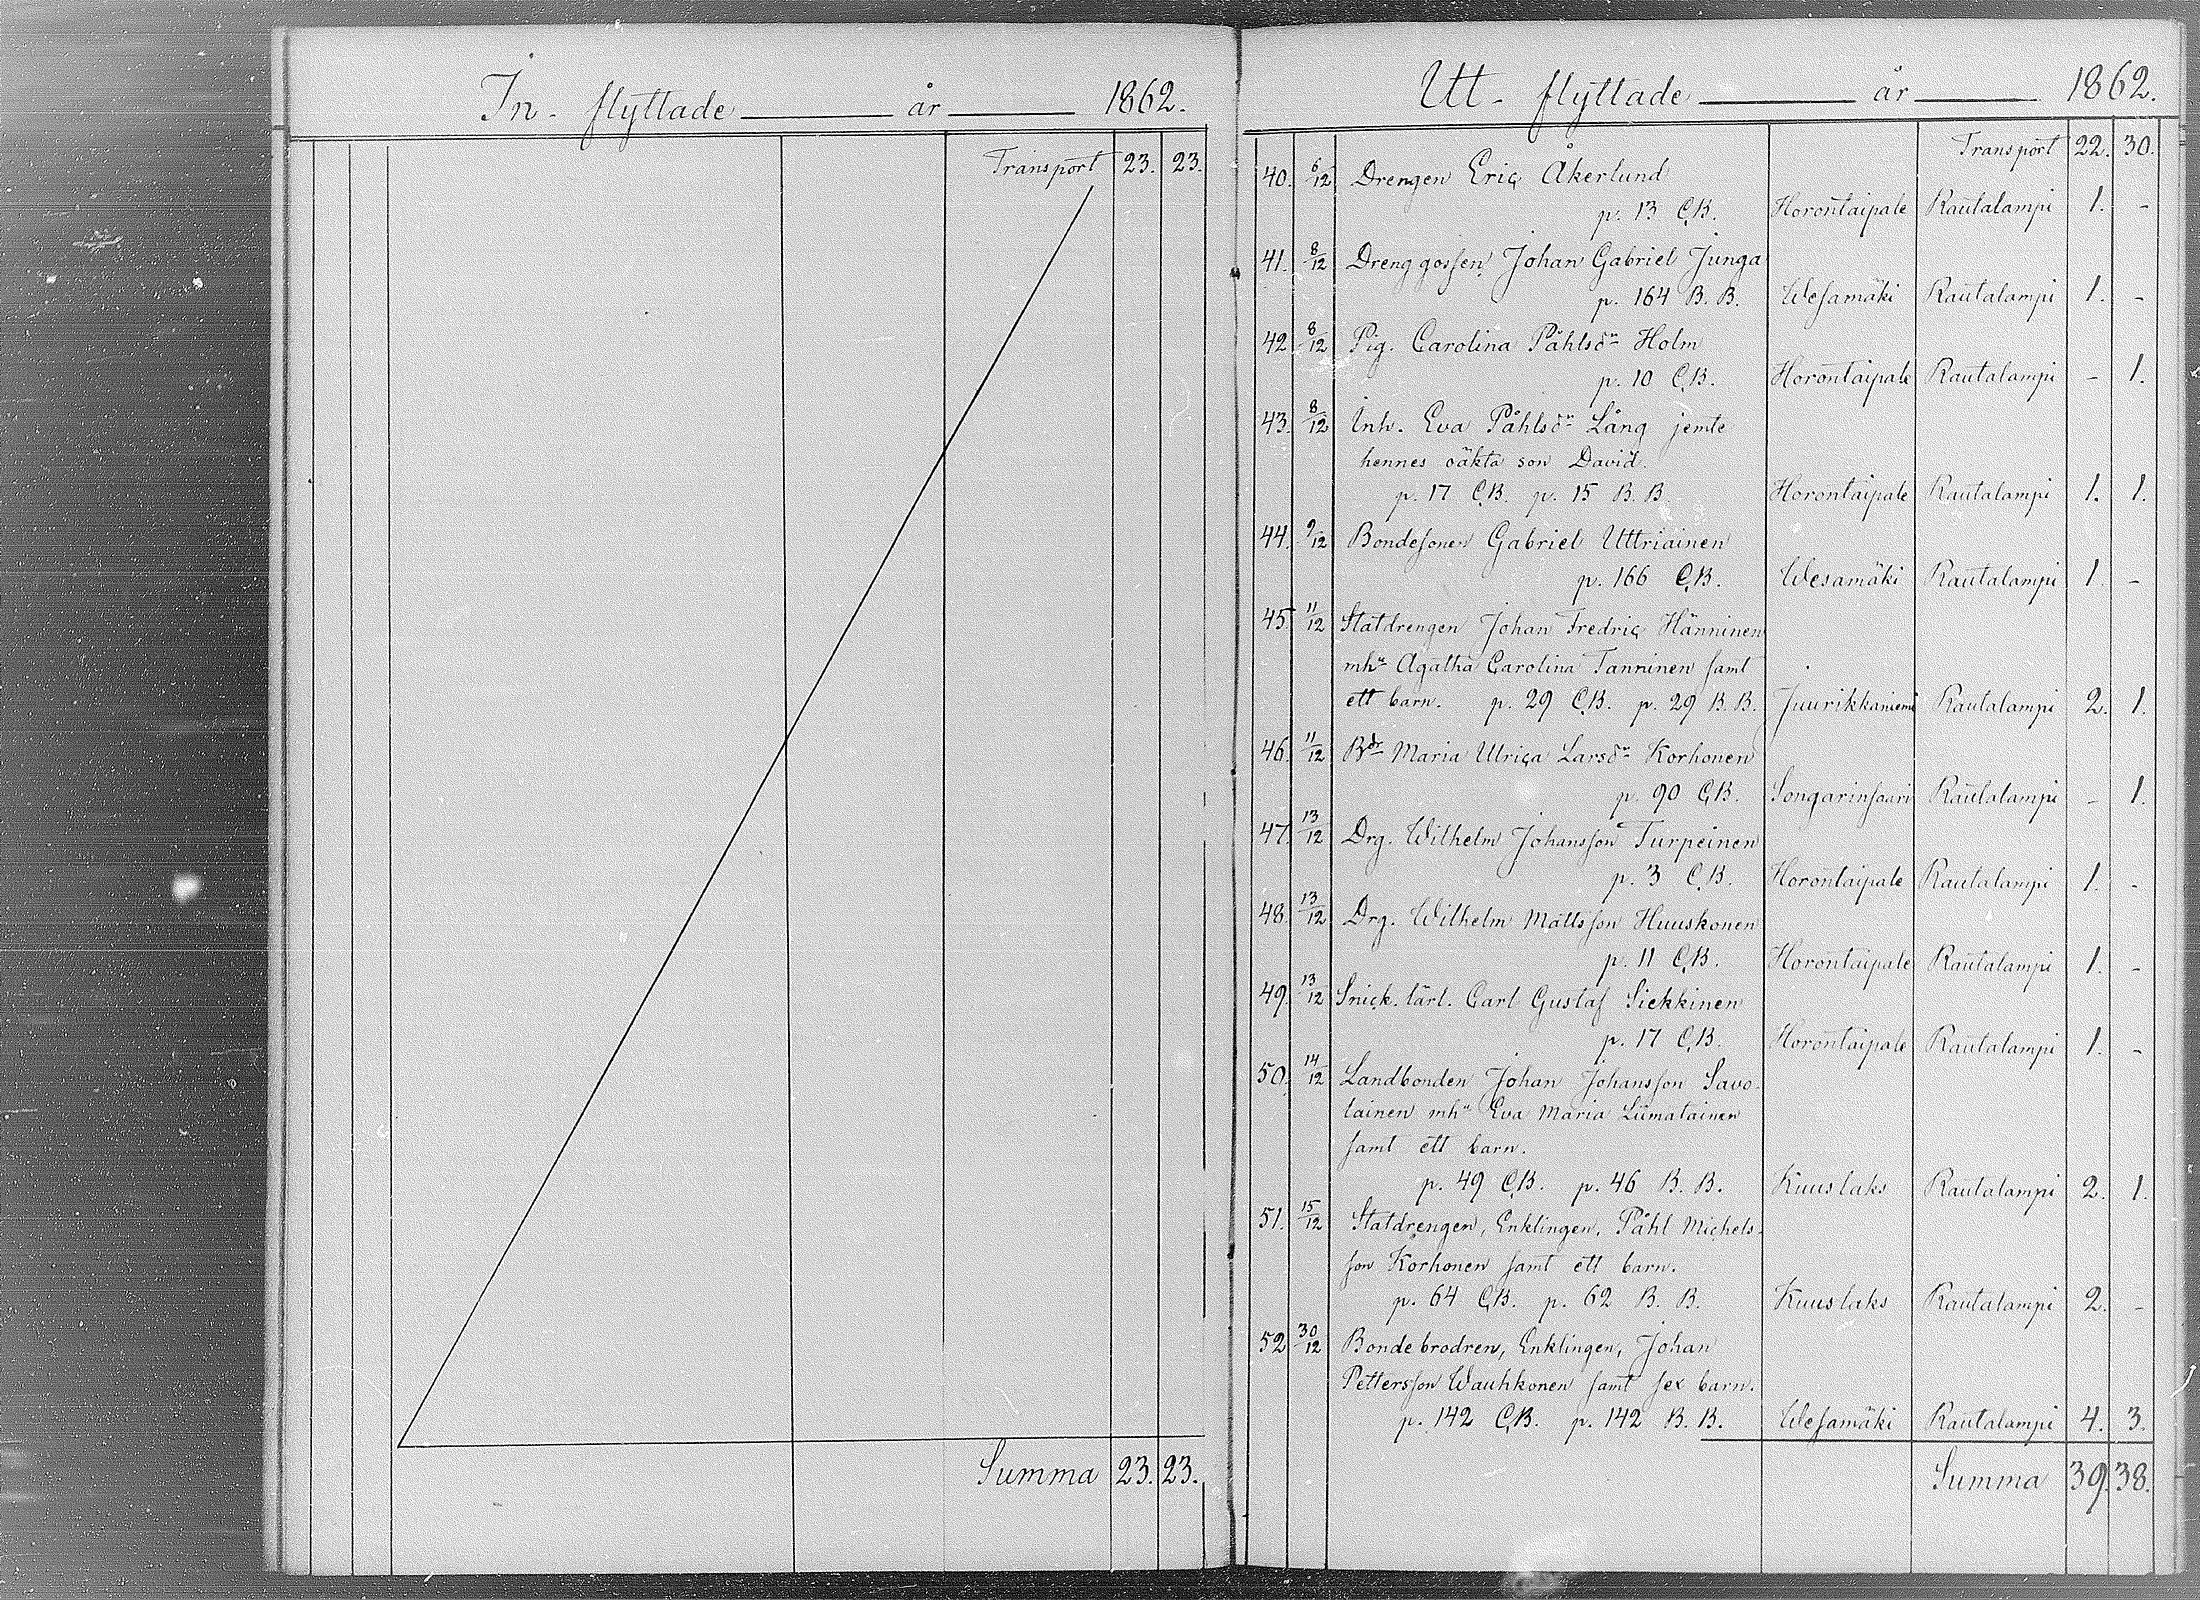 In- flyttade år 1862.
Transport 23. 23.
Summa 23. 23.
Utt- flyttade år 1862.
Transport 22. 30.
40. 6/12 Drengen Eric Åkerlund
p. 13 C.B. Horontaipale Rautalampi 1. -
41. 8/12 Drenggossen Johan Gabriel Junga
p. 164 B. B. Wesamäki Rautalampi 1. -
42 8/12 Pig. Carolina Påhlsdr Holm
p. 10 C.B. Horontaipale Rautalampi - 1.
43. 8/12 Inh. Eva Påhlsdr Lång jemte
hennes oäkta son David.
p. 17 C.B. p. 15 B. B. Horontaipale Rautalampi 1. 1.
44. 9/12 Bondesonen Gabriel Uttriainen
p. 166 C.B. Wesamäki Rautalampi 1. -
45. 11/12 Statdrengen Johan Fredric Hänninen
mhu Agatha Carolina Tanninen samt
ett barn. p. 29 C.B. p. 29 B. B. Juurikkaniemi Rautalampi 2. 1.
46. 11/12 Bdr Maria Ulrica Larsdr Korhonen
p. 90 C.B. Songarinsaari Rautalampi - 1.
47. 13/12 Drg. Wilhelm Johansson Turpeinen
p. 3 C.B. Horontaipale Rautalampi 1. -
48. 13/12 Drg. Wilhelm Mattsson Huuskonen
p. 11 C.B. Horontaipale Rautalampi 1. -
49. 13/12 Snick. lärl. Carl Gustaf Siekkinen
p. 17 C.B. Horontaipale Rautalampi 1. -
50. 14/12 Landbonden Johan Johansson Savo-
lainen mhu Eva Maria Liimatainen
samt ett barn.
p. 49 C.B. p. 46 B. B. Kuuslaks Rautalampi 2. 1.
51. 15/12 Statdrengen, Enklingen, Påhl Michels-
son Korhonen samt ett barn.
p. 64 C.B. p. 62 B. B. Kuuslaks Rautalampi 2. -
52 30/12 Bondebrodren, Enklingen, Johan
Pettersson Wauhkonen samt sex barn.
p. 142 C.B. p. 142 B. B. Wesamäki Rautalampi 4. 3.
Summa 39. 38.